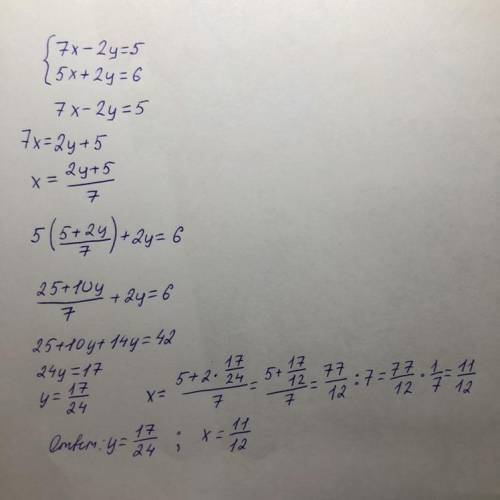 {7x-2y=5
{5x+2y=6
7x-2y=5
7x=2y+5
x=\frac{2y+5}{7}
5(\frac{5+2y}{7})+2y=6
\frac{25+10y}{7}+2y=6
25+10y+14y=42
24y=17
y=\frac{17}{24}
x=\frac{5+2·\frac{17}{24}}{7}=\frac{5+\frac{17}{12}}{7}=\frac{77}{12}:7=\frac{77}{12}·\frac{1}{7}=\frac{11}{12}
Ответ: y=\frac{17}{24}; x=\frac{11}{12}